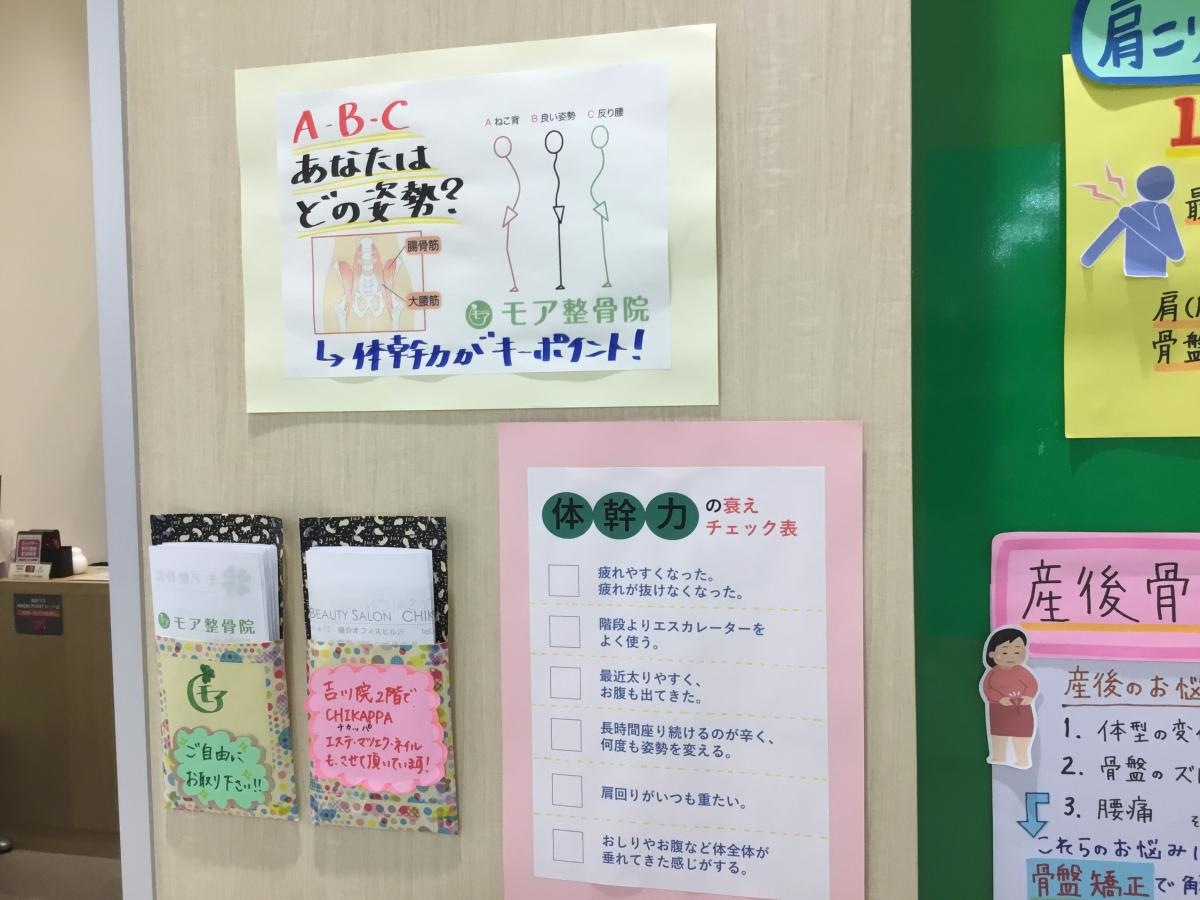 A-B-C
あなたは
どの姿勢?
A ねこ背 B 良い姿勢 C 反り腰
腸骨筋
大腰筋
モア整骨院
↳体幹力がキーポイント!
体幹力の衰え
チェック表
疲れやすくなった。
疲れが抜けなくなった。
階段よりエスカレーターを
よく使う。
最近太りやすく、
お腹も出てきた。
長時間座り続けるのが辛く、
何度も姿勢を変える。
肩回りがいつも重たい。
おしりやお腹など体全体が
垂れてきた感じがする。
モア整骨院
モア
ご自由に
お取り下さい!!
BEAUTY SALON CHIK
吉川院2階で
CHIKAPPA
チカッパ
エステ・マツエク・ネイル
も、させて頂いています!
肩こり
1
肩
骨盤
産後骨
産後のお悩
1. 体型の変
2. 骨盤のズ
3. 腰痛
これらのお悩み
骨盤矯正で